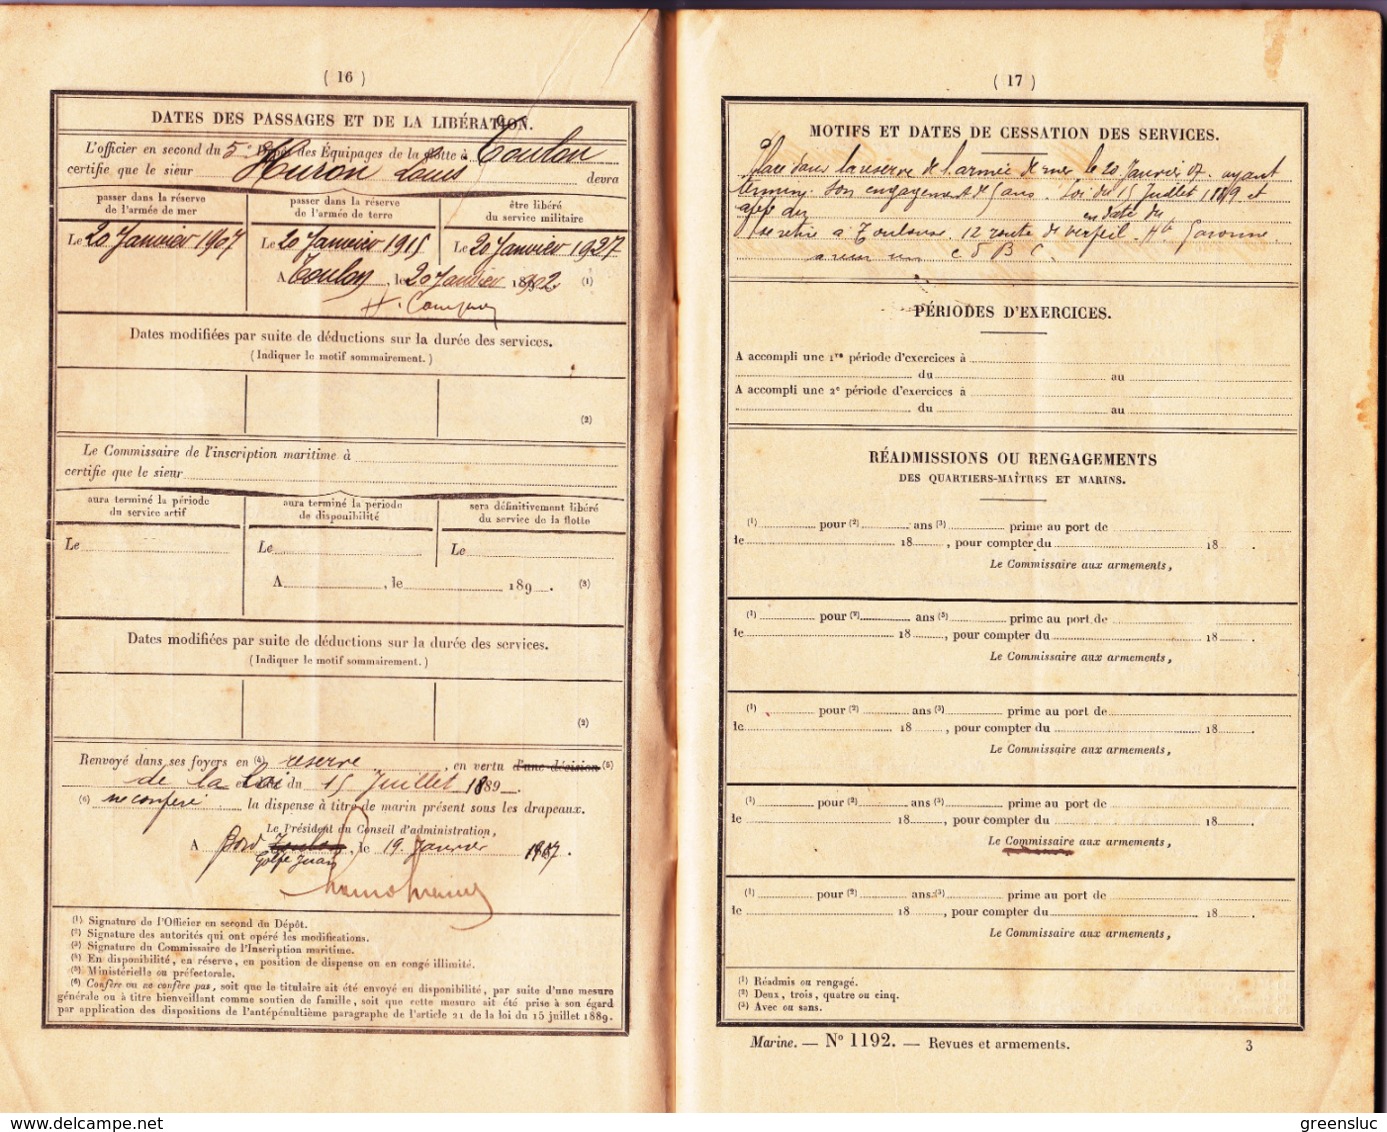 ( 16 )
DATES DES PASSAGES ET DE LA LIBÉRATION.
L'officier en second du 5e Dépôt des Équipages de la flotte à Toulon
certifie que le sieur Huron Louis devra
passer dans la réserve
de l'armée de mer
passer dans la réserve
de l'armée de terre
être libéré
du service militaire
Le 20 Janvier 1907
Le 20 Janvier 1915
Le 20 Janvier 1927
A Toulon, le 20 Janvier 1902. (1)
Dates modifiées par suite de déductions sur la durée des services.
(Indiquer le motif sommairement.)
(2)
Le Commissaire de l'inscription maritime à
certifie que le sieur
aura terminé la période
du service actif
aura terminé la période
de disponibilité
sera définitivement libéré
du service de la flotte
Le
Le
Le
A , le 189 . (3)
Dates modifiées par suite de déductions sur la durée des services.
(Indiquer le motif sommairement.)
(2)
Renvoyé dans ses foyers en (4) réserve , en vertu d'une décision (5)
de la Loi du 15 Juillet 1889 .
(6) ne confère la dispense à titre de marin présent sous les drapeaux.
Le Président du Conseil d'administration,
A Bord Toulon, le 19 Janvier 1907.
Golfe Juan
(1) Signature de l'Officier en second du Dépôt.
(2) Signature des autorités qui ont opéré les modifications.
(3) Signature du Commissaire de l'Inscription maritime.
(4) En disponibilité, en réserve, en position de dispense ou en congé illimité.
(5) Ministérielle ou préfectorale.
(6) Confère ou ne confère pas, soit que le titulaire ait été envoyé en disponibilité, par suite d'une mesure
générale ou à titre bienveillant comme soutien de famille, soit que cette mesure ait été prise à son égard
par application des dispositions de l'antépénultième paragraphe de l'article 21 de la loi du 15 juillet 1889.
( 17 )
MOTIFS ET DATES DE CESSATION DES SERVICES.
Placé dans la réserve de l'armée de mer le 20 Janvier 07. ayant
terminé son engagement de 5 ans. Loi du 15 Juillet 1889 et
du en date du
se retire à Toulouse. 12 route de Verfeil. Hte Garonne
a reçu un C D B C.
PÉRIODES D'EXERCICES.
A accompli une 1re période d'exercices à
du au
A accompli une 2e période d'exercices à
du au
RÉADMISSIONS OU RENGAGEMENTS
DES QUARTIERS-MAÎTRES ET MARINS.
(1) pour (2) ans (3) prime au port de
le 18 , pour compter du 18 .
Le Commissaire aux armements,
(1) pour (2) ans (3) prime au port de
le 18 , pour compter du 18 .
Le Commissaire aux armements,
(1) pour (2) ans (3) prime au port de
le 18 , pour compter du 18 .
Le Commissaire aux armements,
(1) pour (2) ans (3) prime au port de
le 18 , pour compter du 18 .
Le Commissaire aux armements,
(1) pour (2) ans (3) prime au port de
le 18 , pour compter du 18 .
Le Commissaire aux armements,
(1) Réadmis ou rengagé.
(2) Deux, trois, quatre ou cinq.
(3) Avec ou sans.
Marine. — N° 1192. — Revues et armements. 3
delcampe.net
greensluc